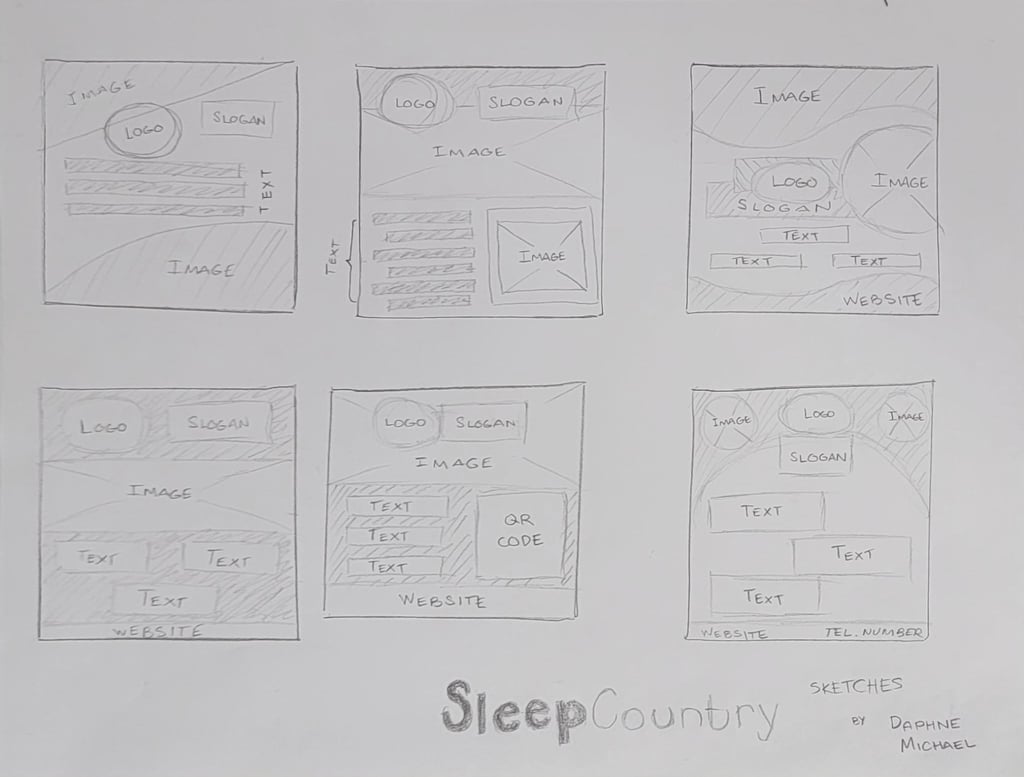 IMAGE
LOGO
SLOGAN
TEXT
IMAGE
LOGO
SLOGAN
IMAGE
TEXT
IMAGE
IMAGE
IMAGE
LOGO
SLOGAN
TEXT
TEXT
TEXT
WEBSITE
LOGO
SLOGAN
IMAGE
TEXT
TEXT
TEXT
WEBSITE
LOGO
SLOGAN
IMAGE
TEXT
TEXT
TEXT
QR
CODE
WEBSITE
IMAGE
LOGO
IMAGE
SLOGAN
TEXT
TEXT
TEXT
WEBSITE
TEL. NUMBER
SleepCountry
SKETCHES
BY DAPHNE
MICHAEL